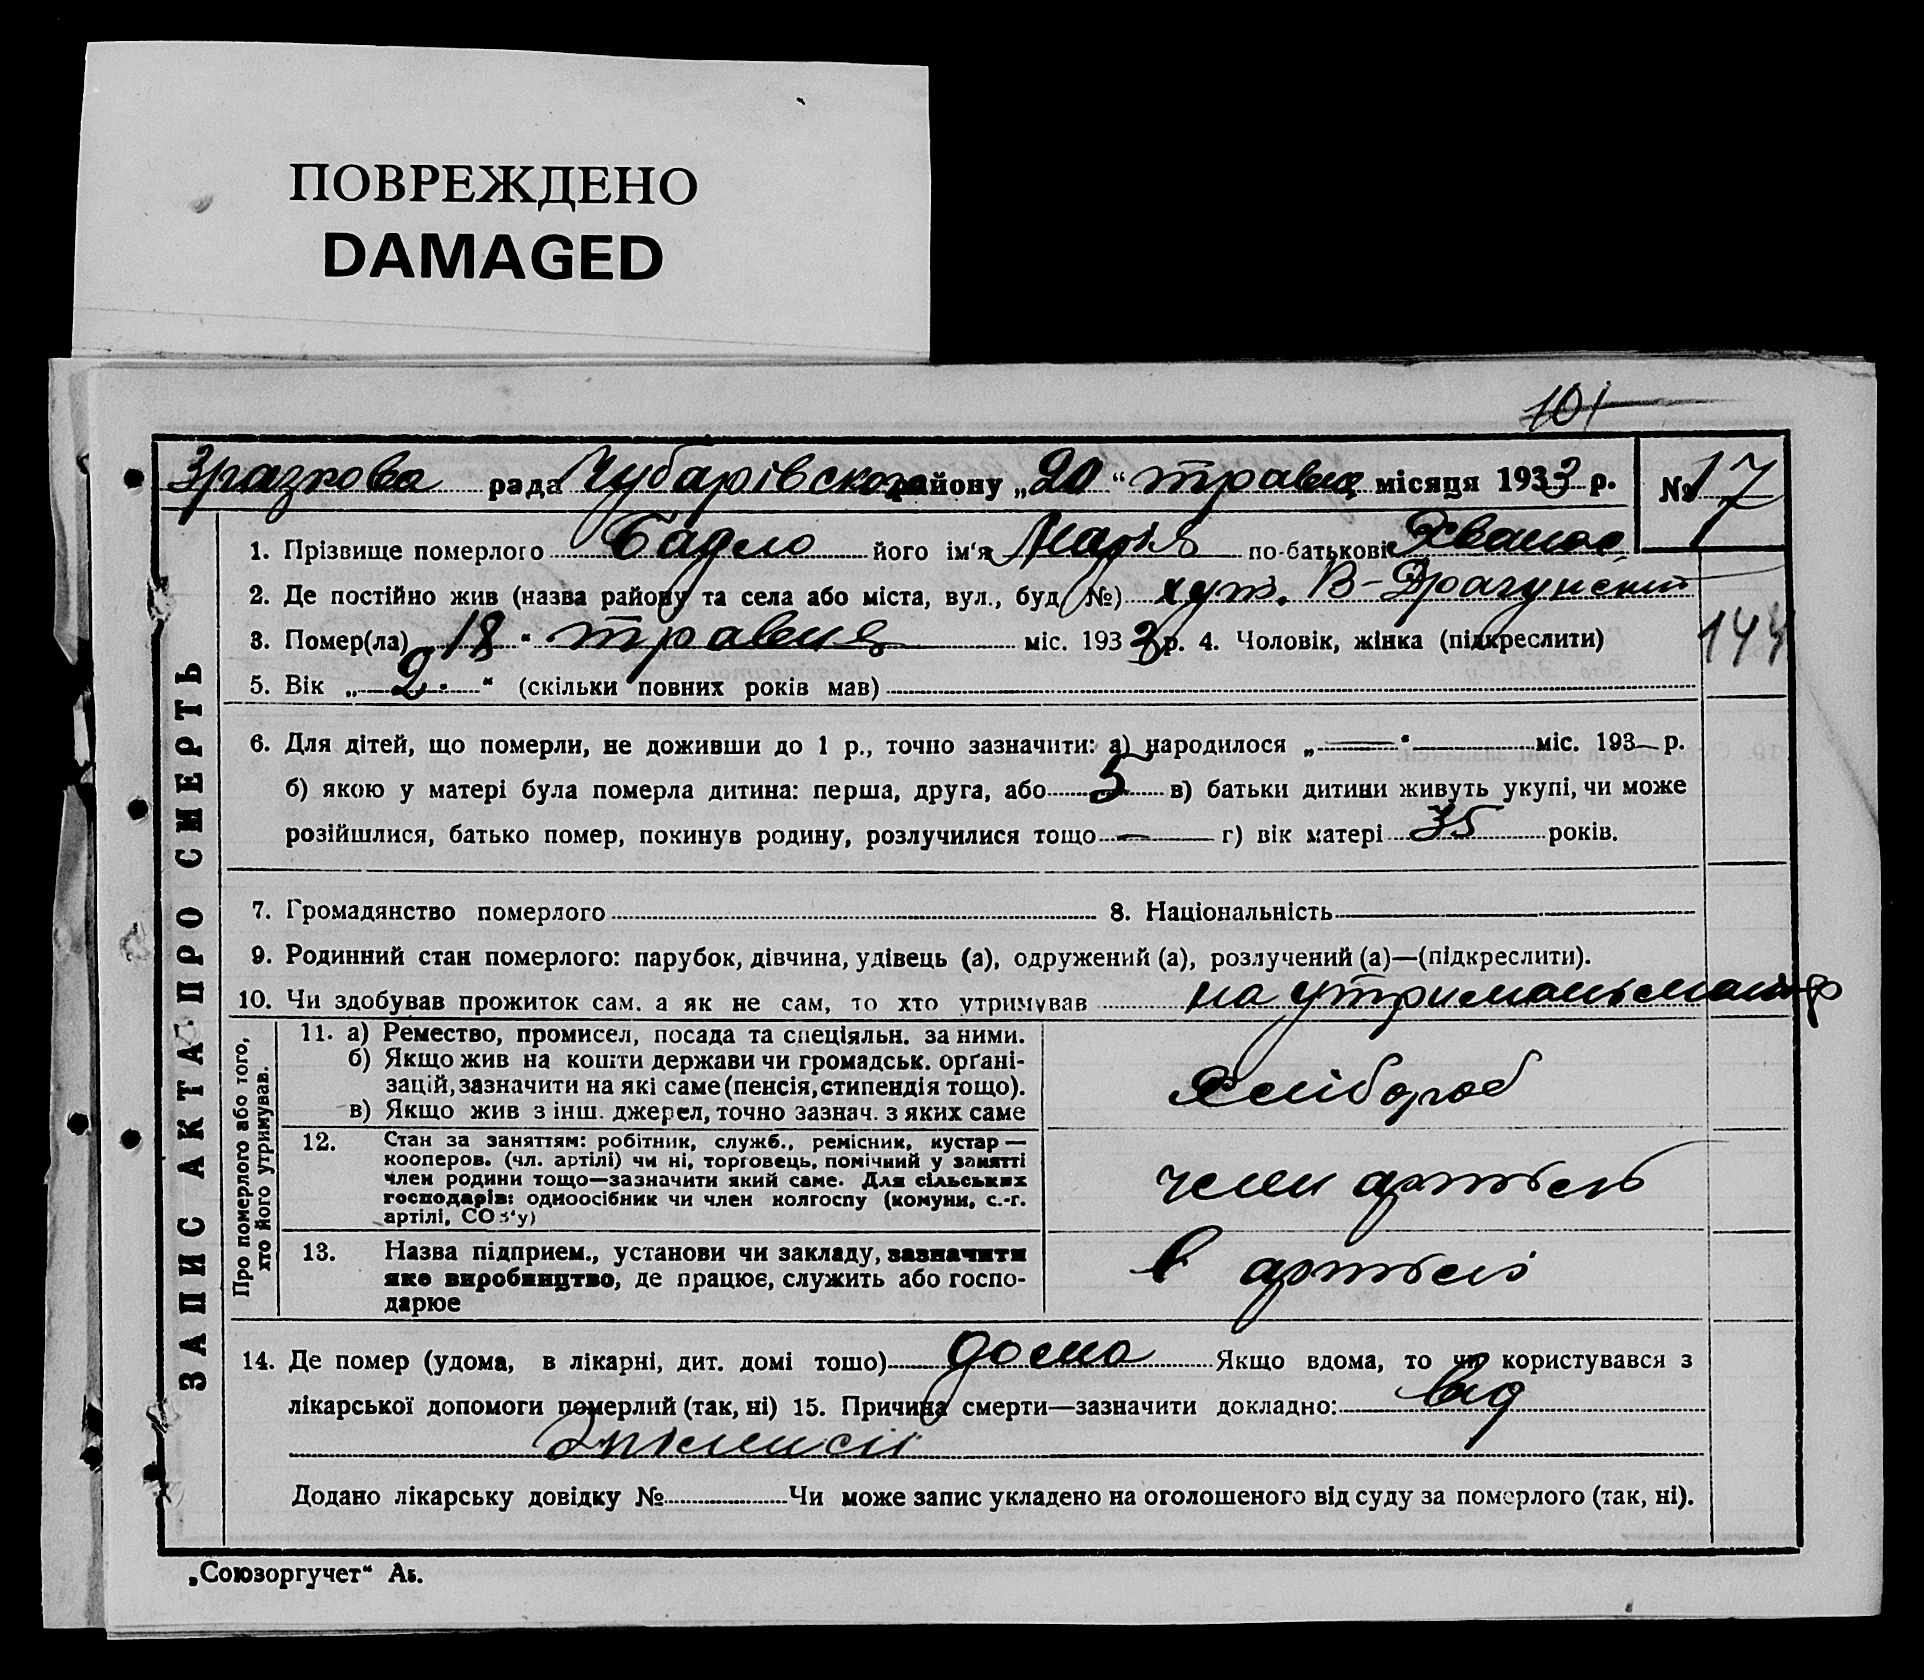 ПОВРЕЖДЕНО
DAMAGED
101
Зразкова рада Чубарівского району „20“ травня місяця 1933 р. № 17
1. Прізвище померлого Бадло його ім'я Марія по-батькові
2. Де постійно жив (назва району та села або міста, вул., буд. №) хут. В-Драгунскі
3. Помер(ла) „18“ травня міс. 1933 р. 4. Чоловік, жінка (підкреслити) 144
5. Вік „2.“ (скільки повних років мав)
6. Для дітей, що померли, не доживши до 1 р., точно зазначити: а) народилося „—“ — міс. 193— р.
б) якою у матері була померла дитина: перша, друга, або 5 в) батьки дитини живуть укупі, чи може
розійшлися, батько помер, покинув родину, розлучилися тощо — г) вік матері 35 років.
7. Громадянство померлого 8. Національність
9. Родинний стан померлого: парубок, дівчина, удівець (а), одружений (а), розлучений (а)—(підкреслити).
10. Чи здобував прожиток сам, а як не сам, то хто утримував на утримані
ЗАПИС АКТА ПРО СМЕРТЬ
Про померлого або того,
хто його утримував.
11. а) Ремество, промисел, посада та спеціяльн. за ними.
б) Якщо жив на кошти держави чи громадськ. орґані-
зацій, зазначити на які саме (пенсія, стипендія тощо).
в) Якщо жив з інш. джерел, точно зазнач. з яких саме
Хлібороб
12. Стан за заняттям: робітник, служб., ремісник, кустар—
кооперов. (чл. артілі) чи ні, торговець, помічний у занятті
член родини тощо—зазначити який саме. Для сільських
господарів: одноосібник чи член колгоспу (комуни, с.-г.
артілі, СОЗ'у)
член артьель
13. Назва підприєм., установи чи закладу, зазначити
яке виробництво, де працює, служить або госпо-
дарює
в артьелі
14. Де помер (удома, в лікарні, дит. домі тощо) дома Якщо вдома, то чи користувався з
лікарської допомоги померлий (так, ні) 15. Причина смерти—зазначити докладно: від
Додано лікарську довідку № Чи може запис укладено на оголошеного від суду за померлого (так, ні).
„Союзоргучет“ Аз.